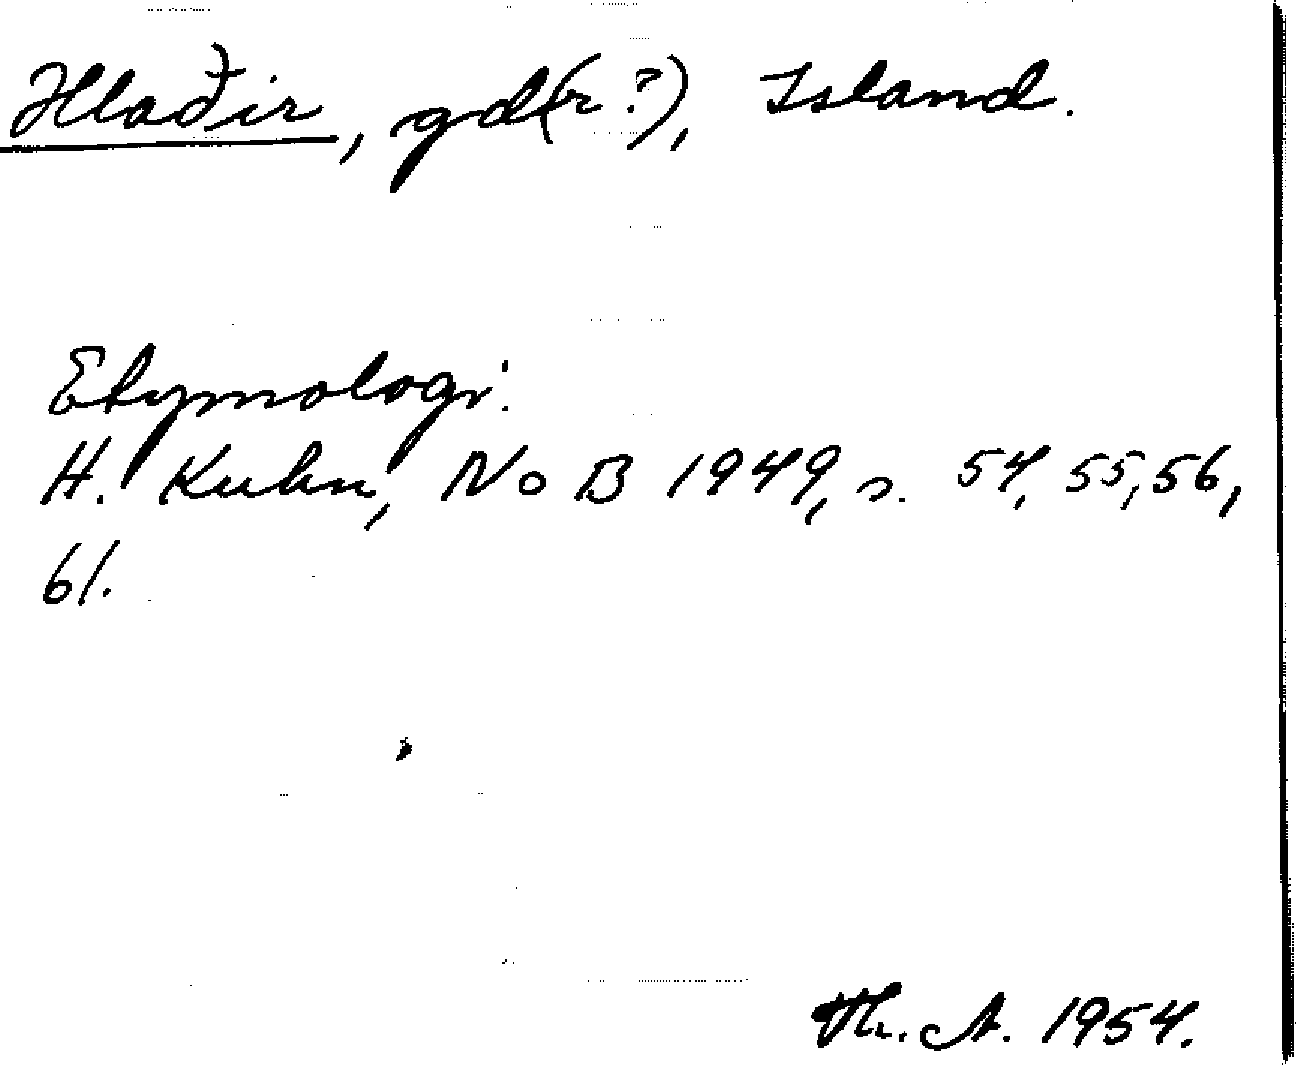 Hlaðir, gd(r?), Island.
Etymologi:
H. Kuhn, No B 1949, s. 54, 55, 56,
61.
Th. A. 1954.